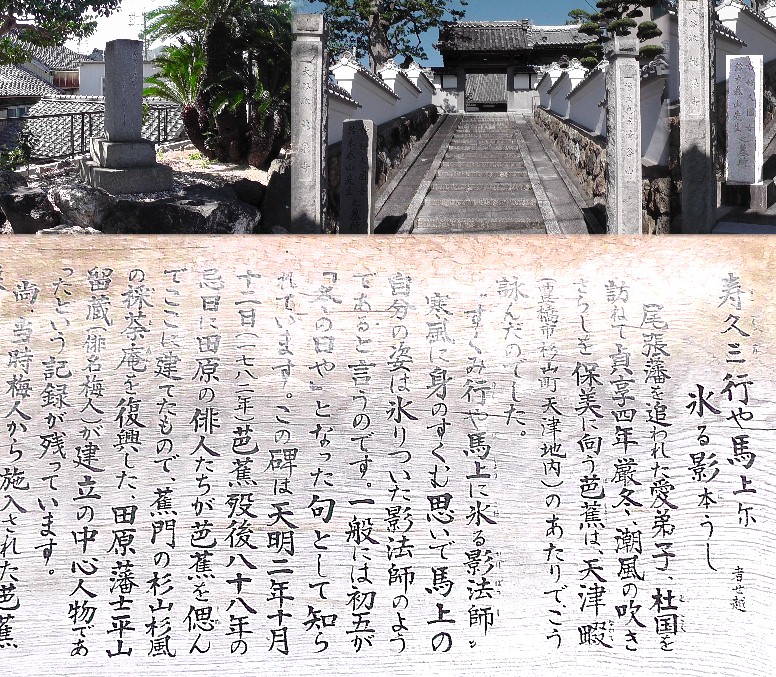 寿久三行や馬上尓
氷る影本うし
者せ越
尾張藩を追われた愛弟子、杜国を
訪ねて貞享四年厳冬、潮風の吹き
さらしを保美に向う芭蕉は、天津畷
(豊橋市杉山町天津地内)のあたりで、こう
詠んだのでした。
"すくみ行や馬上に氷る影法師"
寒風に身のすくむ思いで馬上の
自分の姿は氷りついた影法師のよう
であると言うのです。一般には初五が
『冬の日や』となった句として知ら
れています。この碑は天明二年十月
十二日(一七八二年)芭蕉殁後八十八年の
忌日に田原の俳人たちが芭蕉を偲ん
でここに建てたもので、蕉門の杉山杉風
の採荼庵を復興した、田原藩士平山
留蔵(俳名梅人)が建立の中心人物であ
ったという記録が残っています。
尚、当時梅人から施入された芭蕉